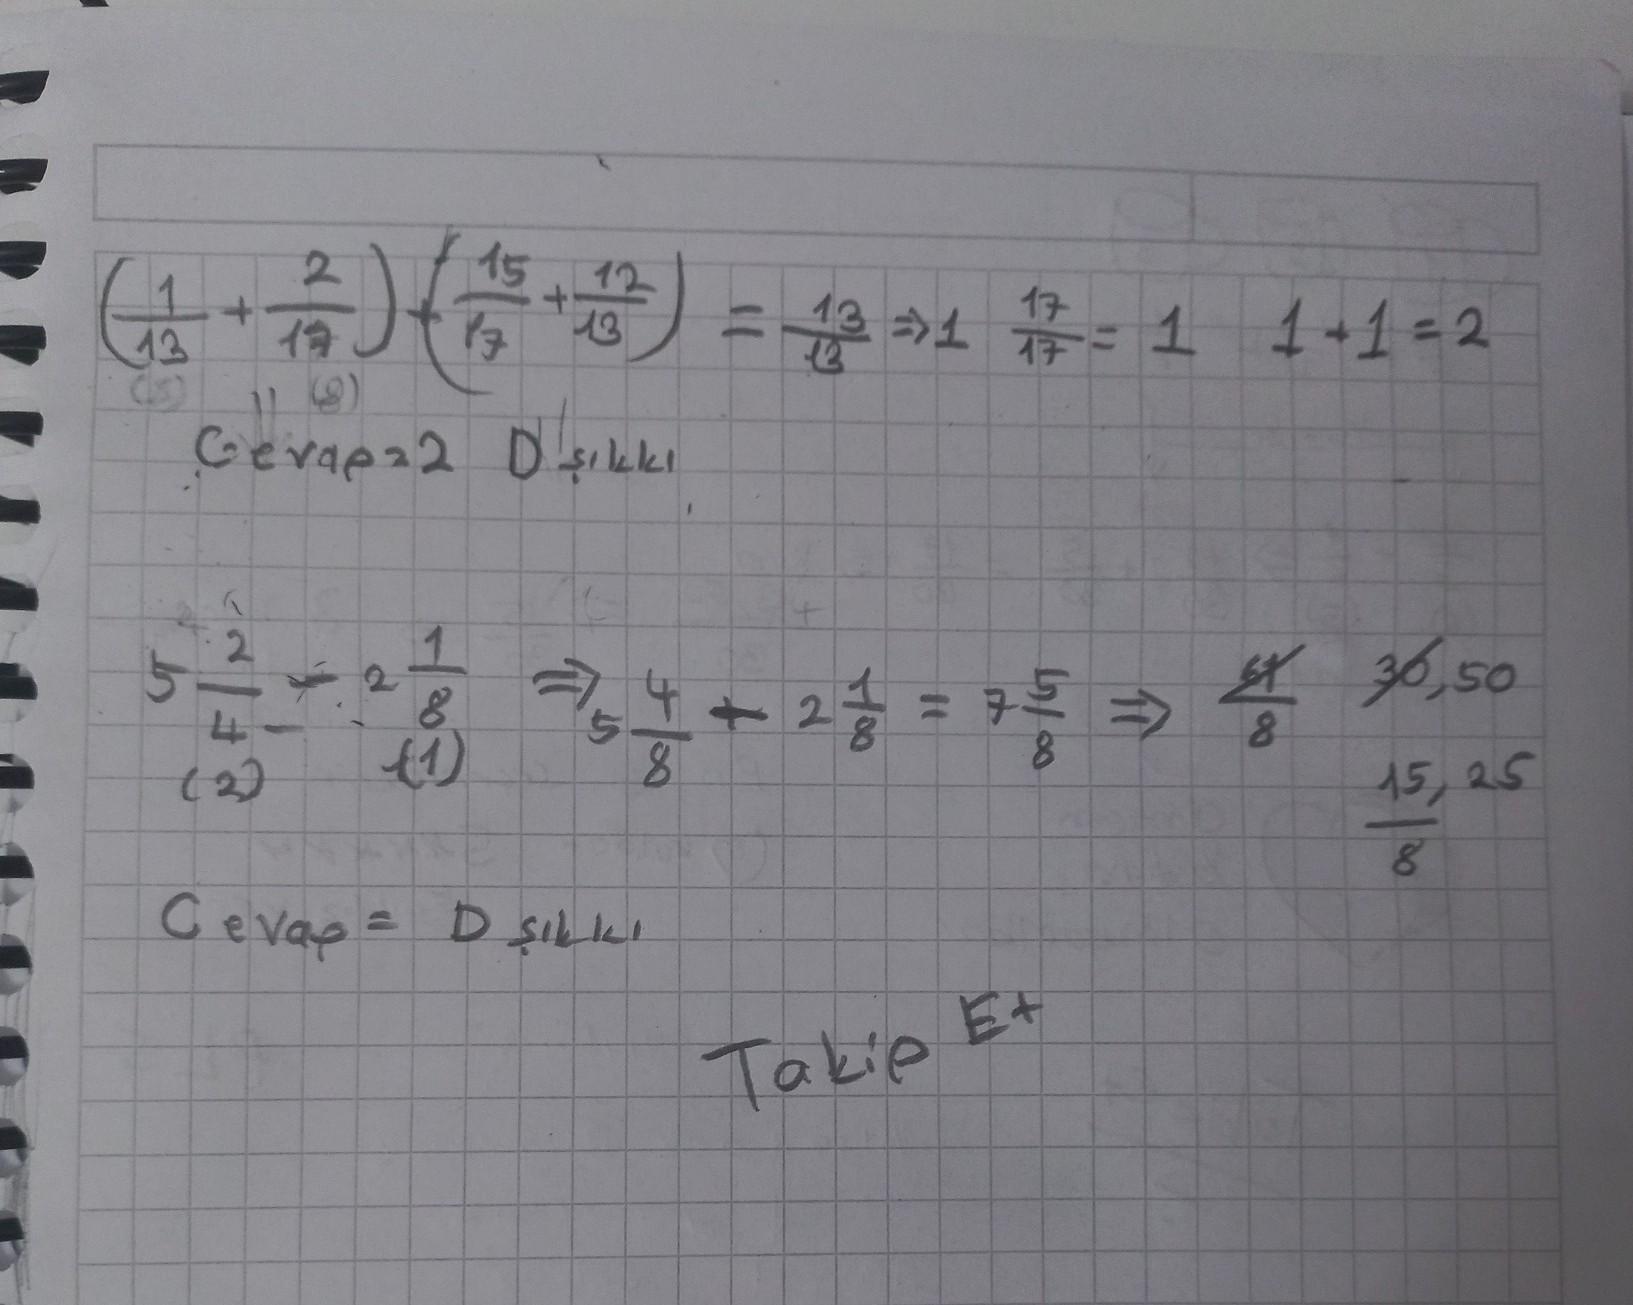 (1/13 + 2/17) + (15/17 + 12/13) = 13/13 ⇒ 1 17/17 = 1 1+1=2
(8)
Cevap=2 D şıkkı
5 2/4 - 2 1/8 ⇒ 5 4/8 + 2 1/8 = 7 5/8 ⇒ 61/8 30,50
(2) (1) 15,25/8
Cevap = D şıkkı
Takip Et